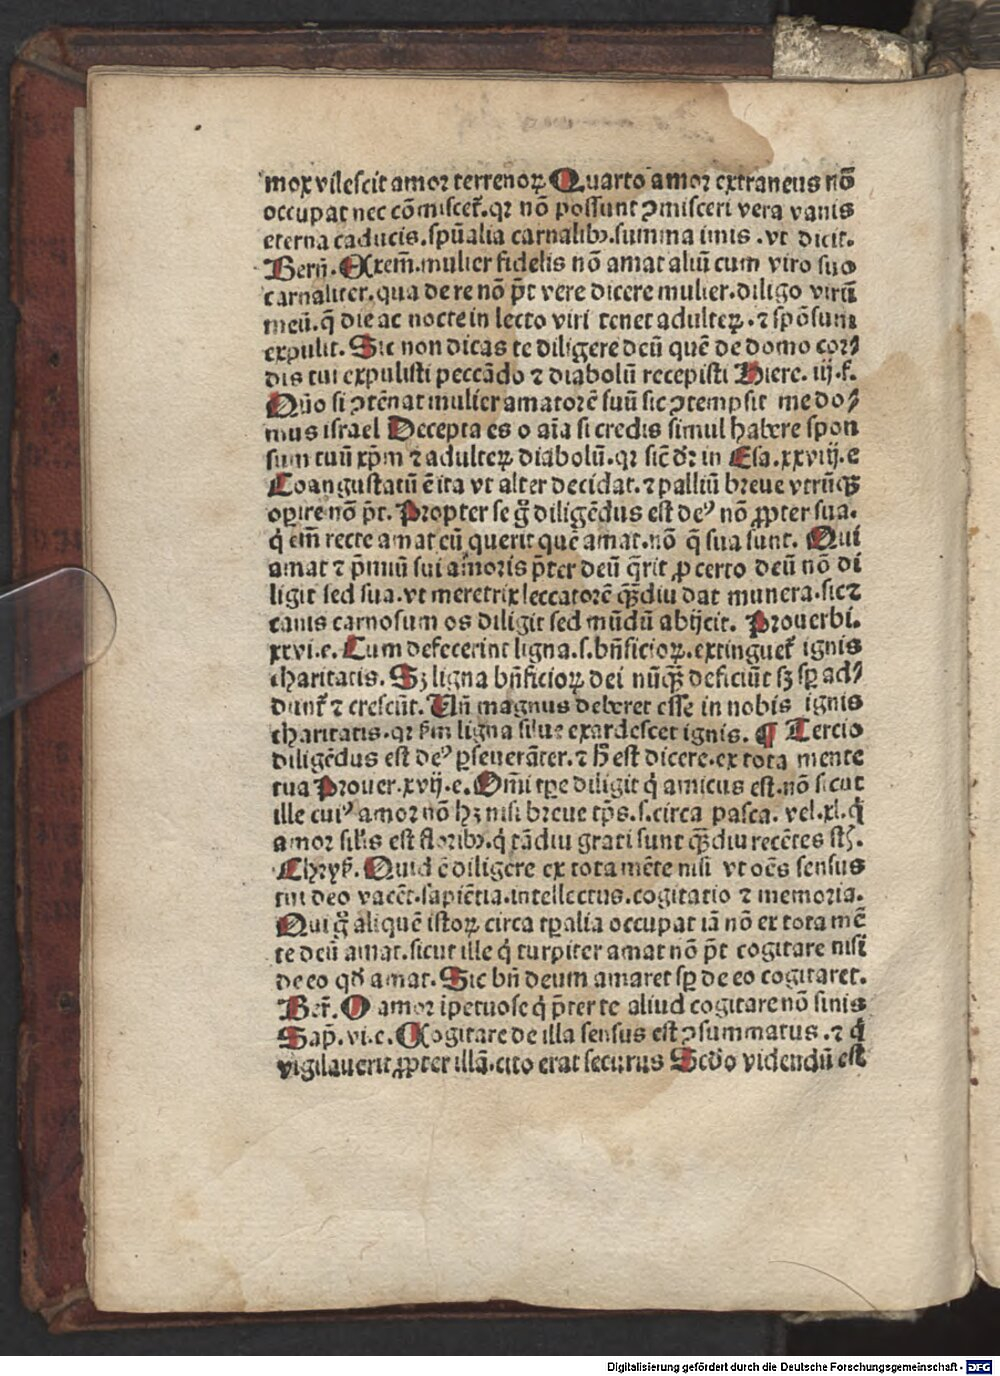 mox vilescit amor terrenoꝝ Quarto amor extraneus nō
occupat nec cōmiscet᷑.qꝛ nō possunt ꝯmisceri vera vanis
eterna caducis.spūalia carnalibꝫ.summa imis .vt dicit.
Berñ. Exem̄.mulier fidelis nō amat aliū cum viro suo
carnaliter.qua de re nō p̄t vere dicere mulier.diligo virū
meū.q̄ die ac nocte in lecto viri tenet adulteꝝ.⁊ spōsum
expulit. Sic non dicas te diligere deū quē de domo cor⸗
dis tui expulisti peccādo ⁊ diabolū recepisti Hiere. iij.f.
Qūo si ꝯtēnat mulier amatorē suū sic ꝯtempsit me do⸗
mus israel Decepta es o aīa si credis simul habere spon
sum tuū xp̄m ⁊ adulteꝝ diabolū.qꝛ sic̄ dꝛ in Esa.xxviij.e
Coangustatū ē ita vt alter decidat.⁊ palliū breue vtrūqꝫ
oꝑire nō p̄t. Propter se g̊ diligēdus est deꝰ nō ꝓpter sua.
q̇ em̄ recte amat eū querit quē amat.nō q̄ sua sunt. Qui
amat ⁊ p̄miū sui amoris p̄ter deū q̄rit ꝓ certo deū nō di
ligit sed sua.vt meretrix leccatorē qꝫ̄diu dat munera.sic ⁊
canis carnosum os diligit sed mūdū abijcit. Prouerbi.
xxvi.c. Cum defecerint ligna.s.bn̄ficioꝝ.extinguet᷑ ignis
charitatis. Sꝫ ligna bn̄ficioꝝ dei nūqꝫ̄ deficiūt sꝫ sꝑ ad⸗
dunt᷑ ⁊ crescūt. Vn̄ magnus deberet esse in nobis ignis
charitatis.qꝛ ẜm ligna silue exardescet ignis. ¶ Tercio
diligēdus est deꝰ ꝑseuerāter.⁊ h̄ est dicere.ex tota mente
tua Prouer.xvij.c. Om̄i tꝑe diligit q̇ amicus est.nō sicut
ille cuiꝰ amor nō hꝫ nisi breue tp̄s.s.circa pasca. vel.xl.q̇
amor sil̄is est floribꝫ.q̇ tādiu grati sunt qꝫ̄diu recētes st̄.
Chryẜ. Quid ē diligere ex tota mēte nisi vt oēs sensus
tui deo vacēt.sapiētia.intellectus.cogitatio ⁊ memoria.
Qui g̊ aliquē istoꝝ circa tꝑalia occupat iā nō ex tota mē
te deū amat.sicut ille q̇ turpiter amat nō p̄t cogitare nisi
de eo qd̄ amat. Sic bn̄ deum amaret sꝑ de eo cogitaret.
Ber̄. O amor īpetuose q̇ p̄ter te aliud cogitare nō sinis
Sap̄.vi.c. Cogitare de illa sensus est ꝯsummatus.⁊ q̇
vigilauerit ꝓpter illā.cito erat securus Scd̄o videndū est
Digitalisierung gefördert durch die Deutsche Forschungsgemeinschaft - DFG